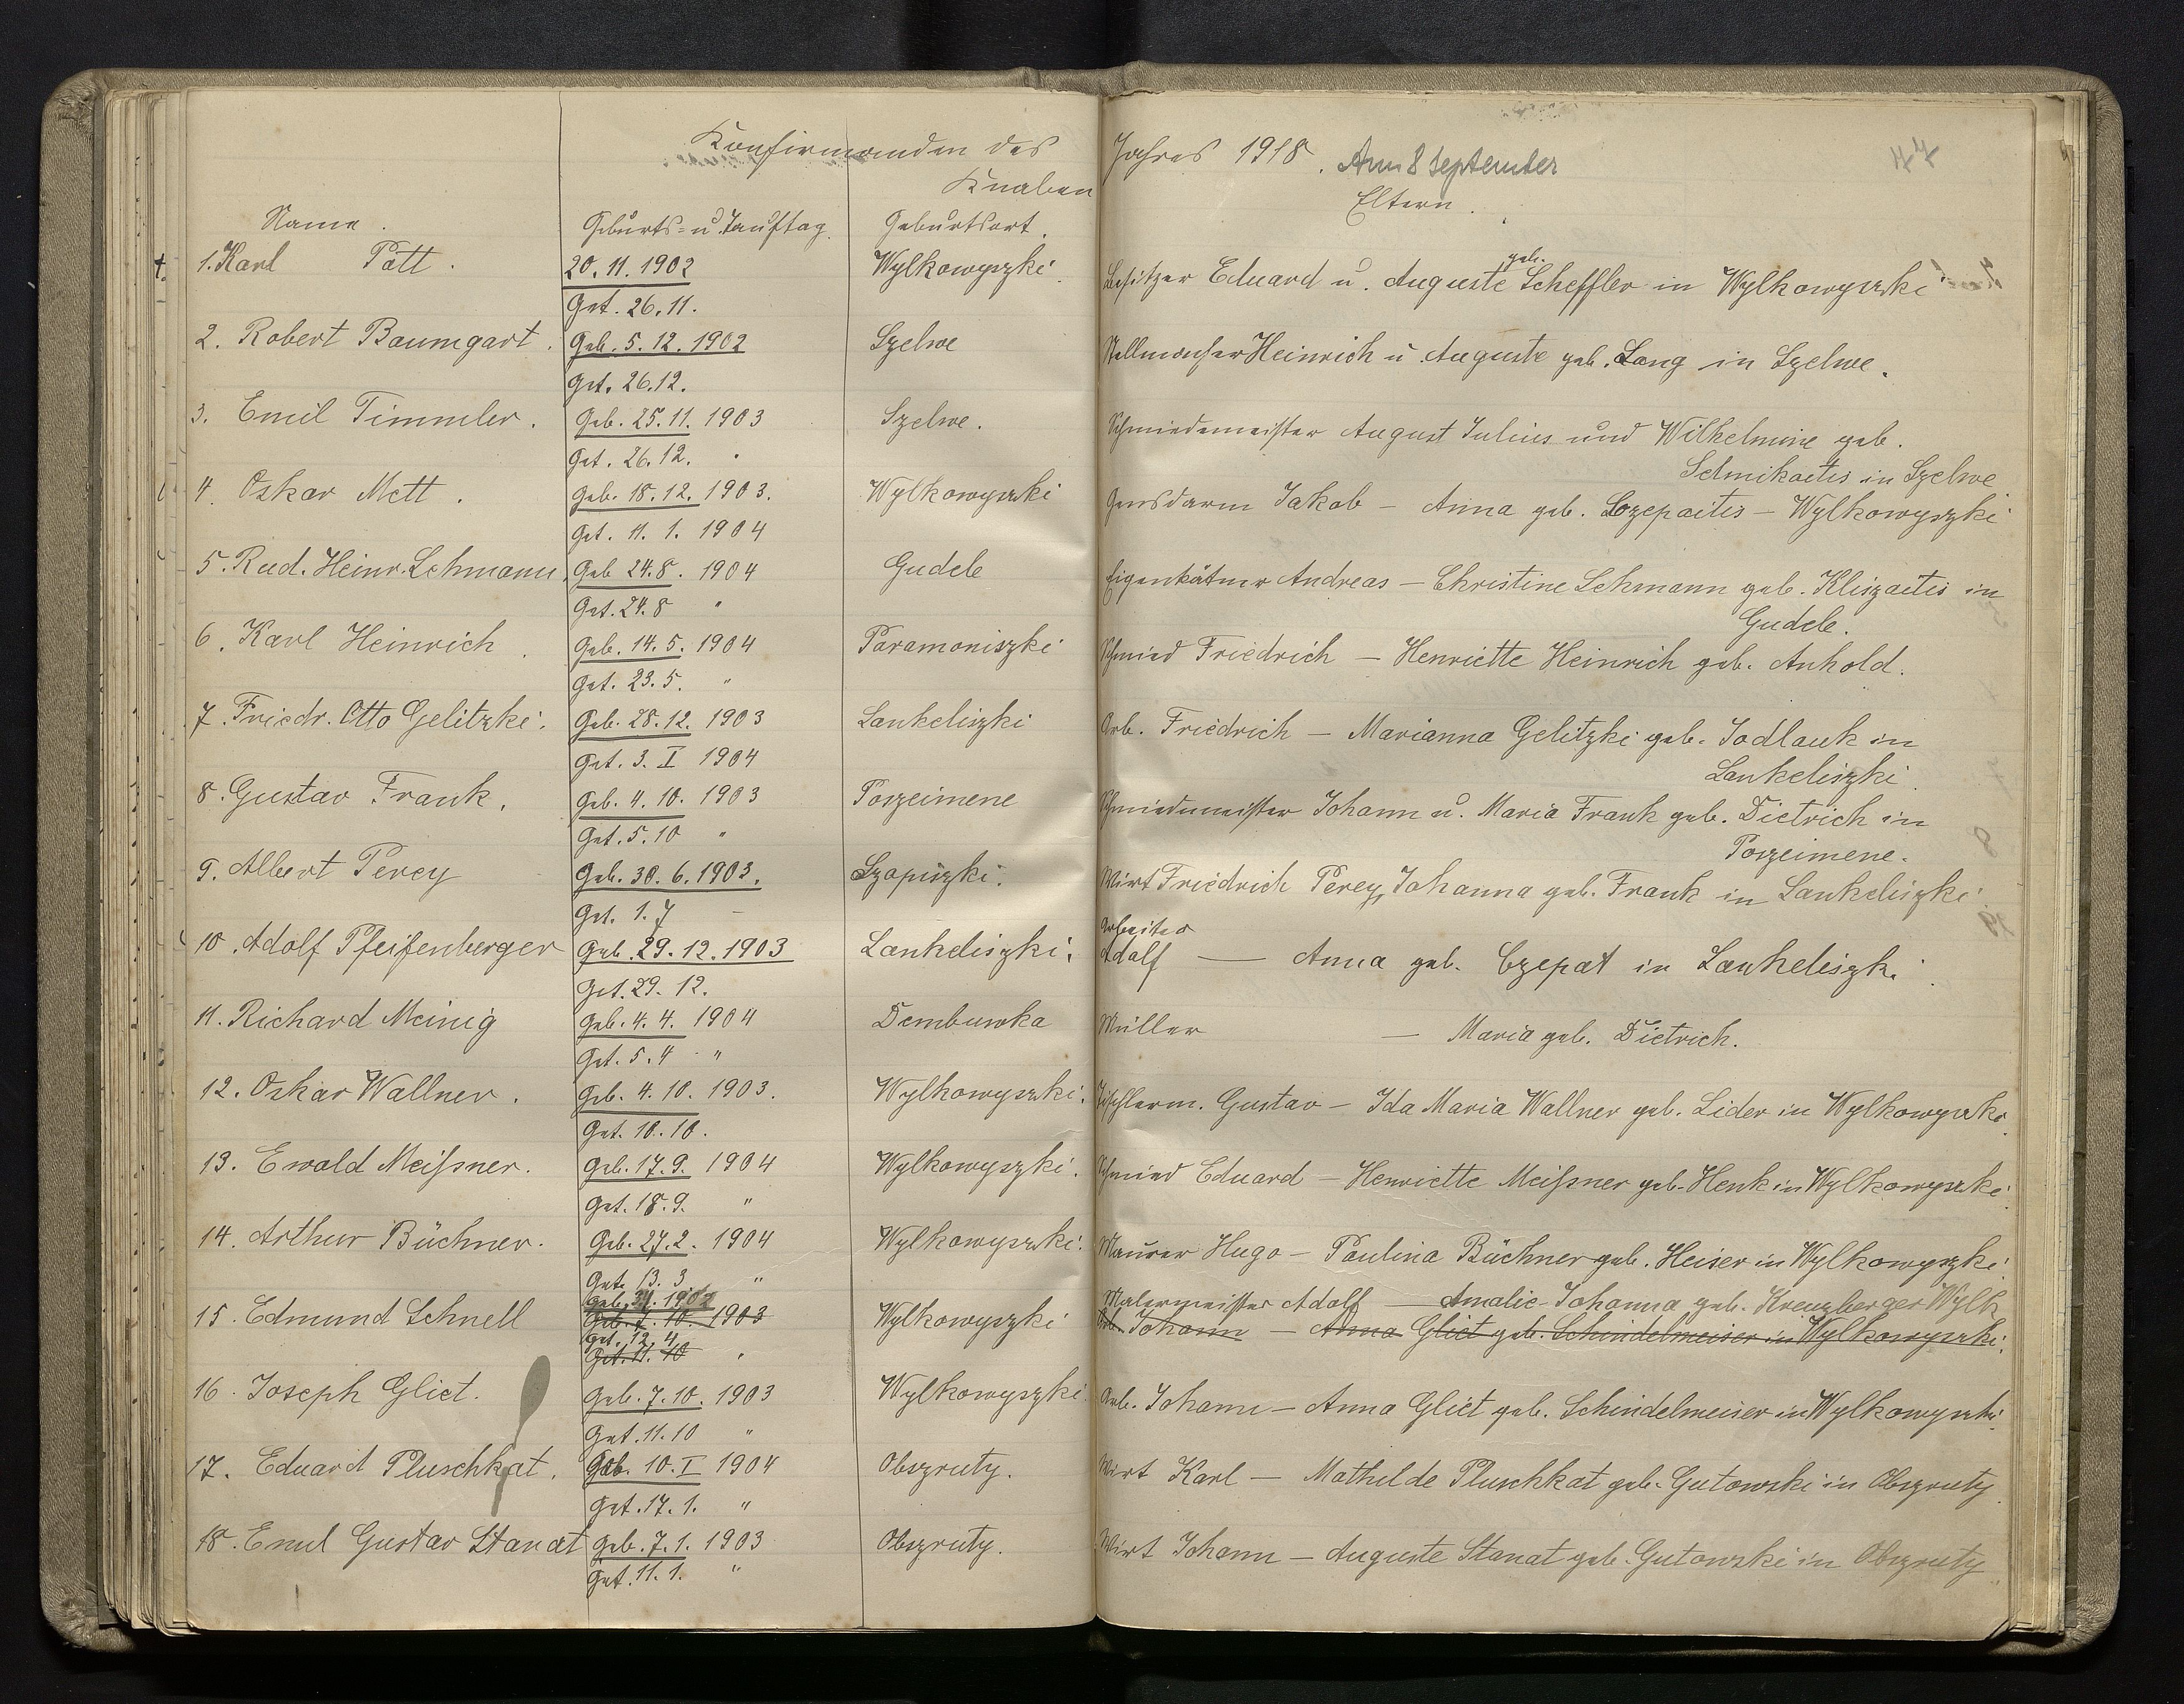 Konfirmanden des Jahres 1918. Am 8 September
Knaben
Name. Geburts- u. Tauftag. Geburtsort. Eltern.
1. Karl Pott. 20.11.1902 Wylkowyszki. Besitzer Eduard u. Auguste geb. Scheffler in Wylkowyszki
Get. 26.11.
2. Robert Baumgart. Geb. 5.12.1902 Szelwe Stellmacher Heinrich u. Auguste geb. Lang in Szelwe.
Get. 26.12.
3. Emil Timmler. Geb. 25.11. 1903 Szelwe. Schmiedemeister August Julius und Wilhelmine geb.
Get. 26.12. " Selmikaitis in Szelwe
4. Oskar Mett. Geb. 18.12. 1903. Wylkowyszki Gensdarm Jakob — Anna geb. — Wylkowyszki
Get. 11. 1. 1904
5. Rud. Heinr. Lehmann. Geb 24.8. 1904 Gudele Eigenkätner Andreas — Christine Lehmann geb. Kliszaitis in
Get. 24.8 " Gudele.
6. Karl Heinrich. Geb. 14.5. 1904 Paramoniszki Schmied Friedrich — Henriette Heinrich geb. Anhold.
Get. 23.5. "
7. Friedr. Otto Gelitzki. Geb. 28.12. 1903 Lankeliszki Arb. Friedrich — Marianna Gelitzki geb. Jodlauk in
Get. 3. I 1904 Lankeliszki.
8. Gustav Frank. Geb. 4. 10. 1903 Poszeimene Schmiedemeister Johann u. Maria Frank geb. Dietrich in
Get. 5.10 " Poszeimene.
9. Albert Perey Geb. 30. 6. 1903. Szapiszki. Wirt Friedrich Perey, Johanna geb. Frank in Lankeliszki.
Get. 1. 7 — Arbeiter
10. Adolf Pfeifenberger Geb. 29.12.1903 Lankeliszki. Adolf — Anna geb. Czepat in Lankeliszki.
Get. 29. 12.
11. Richard Meinig Geb. 4. 4. 1904 Dembuwka Müller — Maria geb. Dietrich.
Get. 5.4 "
12. Oskar Wallner. Geb. 4. 10. 1903. Wylkowyszki. Tischlerm. Gustav — Ida Maria Wallner geb. Lider in Wylkowyszki.
Get. 10. 10.
13. Ewald Meißner. Geb. 17.9. 1904 Wylkowyszki. Schmied Eduard — Henriette Meißner geb. Henk in Wylkowyszki.
Get. 18.9. "
14. Arthur Büchner. Geb. 27.2. 1904 Wylkowyszki. Maurer Hugo — Paulina Büchner geb. Heiser in Wylkowyszki.
Get. 13. 3. "
Geb. 1902 Malermeister Adolf — Amalie Johanna geb. Kreuzberger Wylk
15. Edmund Schnell Geb. 7. 10. 1903 Wylkowyszki Arb. Johann — Anna Gliet geb. Schindelmeiser in Wylkowyszki.
Get. 12. 4.
Get. 11. 10 "
16. Joseph Gliet. Geb. 7.10. 1903 Wylkowyszki Arb. Johann — Anna Gliet geb. Schindelmeiser in Wylkowyszki.
Get. 11.10 "
17. Eduard Pluschkat. Geb. 10. I 1904 Obszruty. Wirt Karl — Mathilde Pluschkat geb. Gutowski in Obszruty.
Get. 17. 1. "
18. Emil Gustav Stanat Geb. 7. 1. 1903 Obszruty. Wirt Johann — Auguste Stanat geb. Gutowski in Obszruty
Get. 11. 1. "